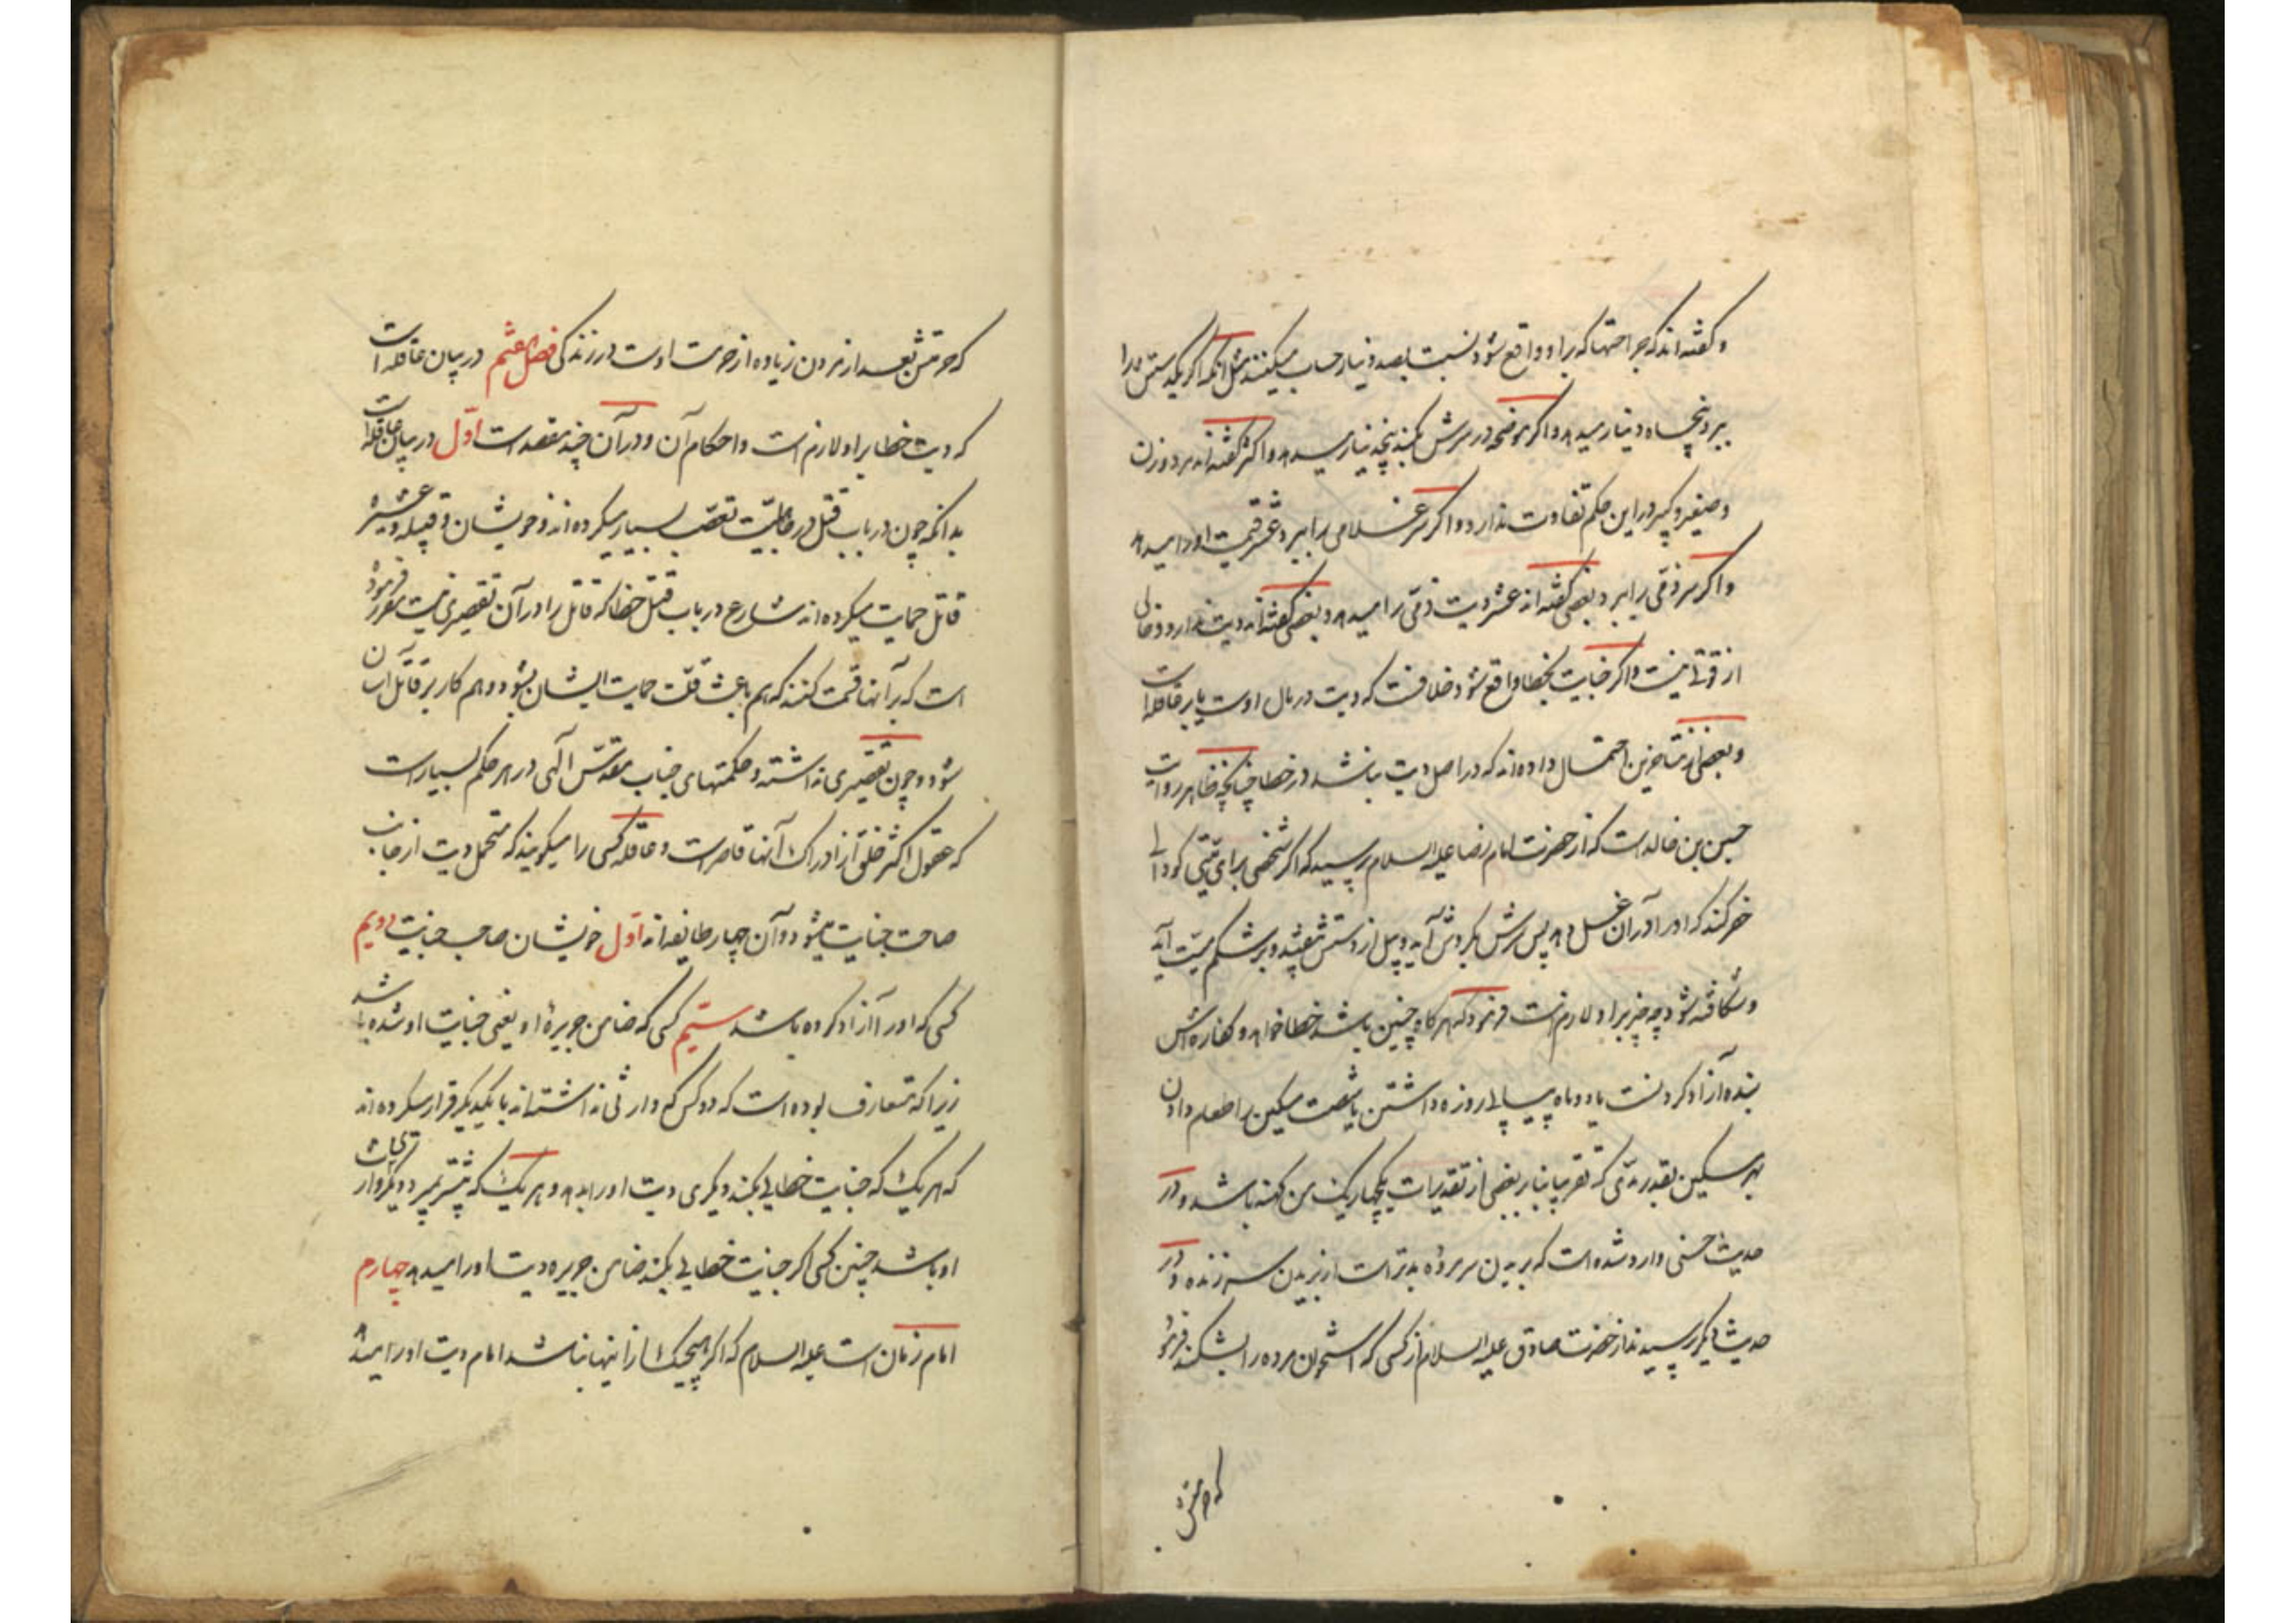 و گفته‌اند که جراحتها که بر او واقع شود نسبت بصد دینار حساب میکنند مثل آنکه اگر یکدستش را
ببرد پنجاه دینار میدهد و اگر موضحه در سرش بکند پنجدینار میدهد و اکثر گفته‌اند مرد و زن
و صغیر و کبیر در این حکم تفاوت ندارد و اگر سر غلامی را ببرد عشر قیمت او را میدهد
و اگر سر ذمّی را ببرد بعضی گفته‌اند عشر دیت ذمّی را میدهد و بعضی گفته‌اند دیت ندارد و خالی
از قوّتی نیست و اگر جنایت بخطا واقع شود خلافست که دیت در مال اوست یا بر عاقله است
و بعضی از متاخرین احتمال داده‌اند که در اصل دیت نباشد در خطا چنانچه ظاهر روایت
حسین بن خالد است که از حضرت امام رضا علیه السلام پرسید که اگر شخصی برای میّتی کودالی
حفر کند که او را در آن غسل دهد پس سرش بکردش آید و بیل از دستش بیفتد و بر شکم میّت آید
و شکافته شود چه چیز بر او لازمست فرمود که هر گاه چنین باشد خطا خواهد و کفاره‌اش
بنده آزاد کردنست یا دو ماه پیاپی روزه داشتن یا شصت مسکین را طعام دادن
بهر مسکین بقدر مدّی که تقریبا بنابر بعضی از تقدیرات یکچهاریک من کهنه باشد و در
حدیث حسنی وارد شده است که بریدن سر مرده بدتر است از بریدن سر زنده و در
حدیث دیگر پرسیدند از حضرت صادق علیه السلام از کسی که استخوان مرده را بشکند فرمود
که حرمتش
که حرمتش بعد از مردن زیاده از حرمت اوست در زندگی فصل هشتم در بیان عاقله است
که دیت خطا بر او لازم است و احکام آن و در آن چند مقصد است اوّل در بیان عاقله است
بدانکه چون در باب قتل در جاهلیّت تعصّب بسیار میکرده‌اند و خویشان و قبیله و عشیره
قاتل حمایت میکرده‌اند شارع در باب قتل خطا که قاتل را در آن تقصیری نیست مقرر فرموده
است که بر آنها قسمت کنند که هم باعث قلّت حمایت ایشان بشود و هم کار بر قاتل آسان
شود و چون تقصیری نداشته و حکمتهای جناب مقدّس الهی در هر حکم بسیار است
که عقول اکثر خلق از ادراک آنها قاصر است و عاقله کسی را میگویند که متحمل دیت از جانب
صاحب جنایت میشود و آن چهار طایفه‌اند اوّل خویشان صاحب جنایت دویم
کسی که او را آزاد کرده باشد سیّم کسی که ضامن جریرهٔ او یعنی جنایت او شده باشد
زیرا که متعارف بوده است که دو کس که وارثی نداشته‌اند با یکدیگر قرار میکرده‌اند
که هر یک که جنایت خطایی بکند دیگری دیت او را بدهد و هر یک که پیشتر بمیرد دیگری وارث
او باشد چنین کسی اگر جنایت خطایی بکند ضامن جریره دیت او را میدهد چهارم
امام زمان است علیه السلام که اگر هیچیک از اینها نباشد امام دیت او را میدهد